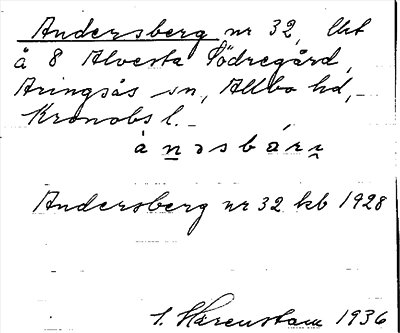 Andersberg nr 32, Urt
å 8 Alvesta Södregård,
Aringsås sn, Allbo hd,
Kronobs l.
à n̲əsbárı̭
Andersberg nr 32 kb 1928
S. Härenstam 1936